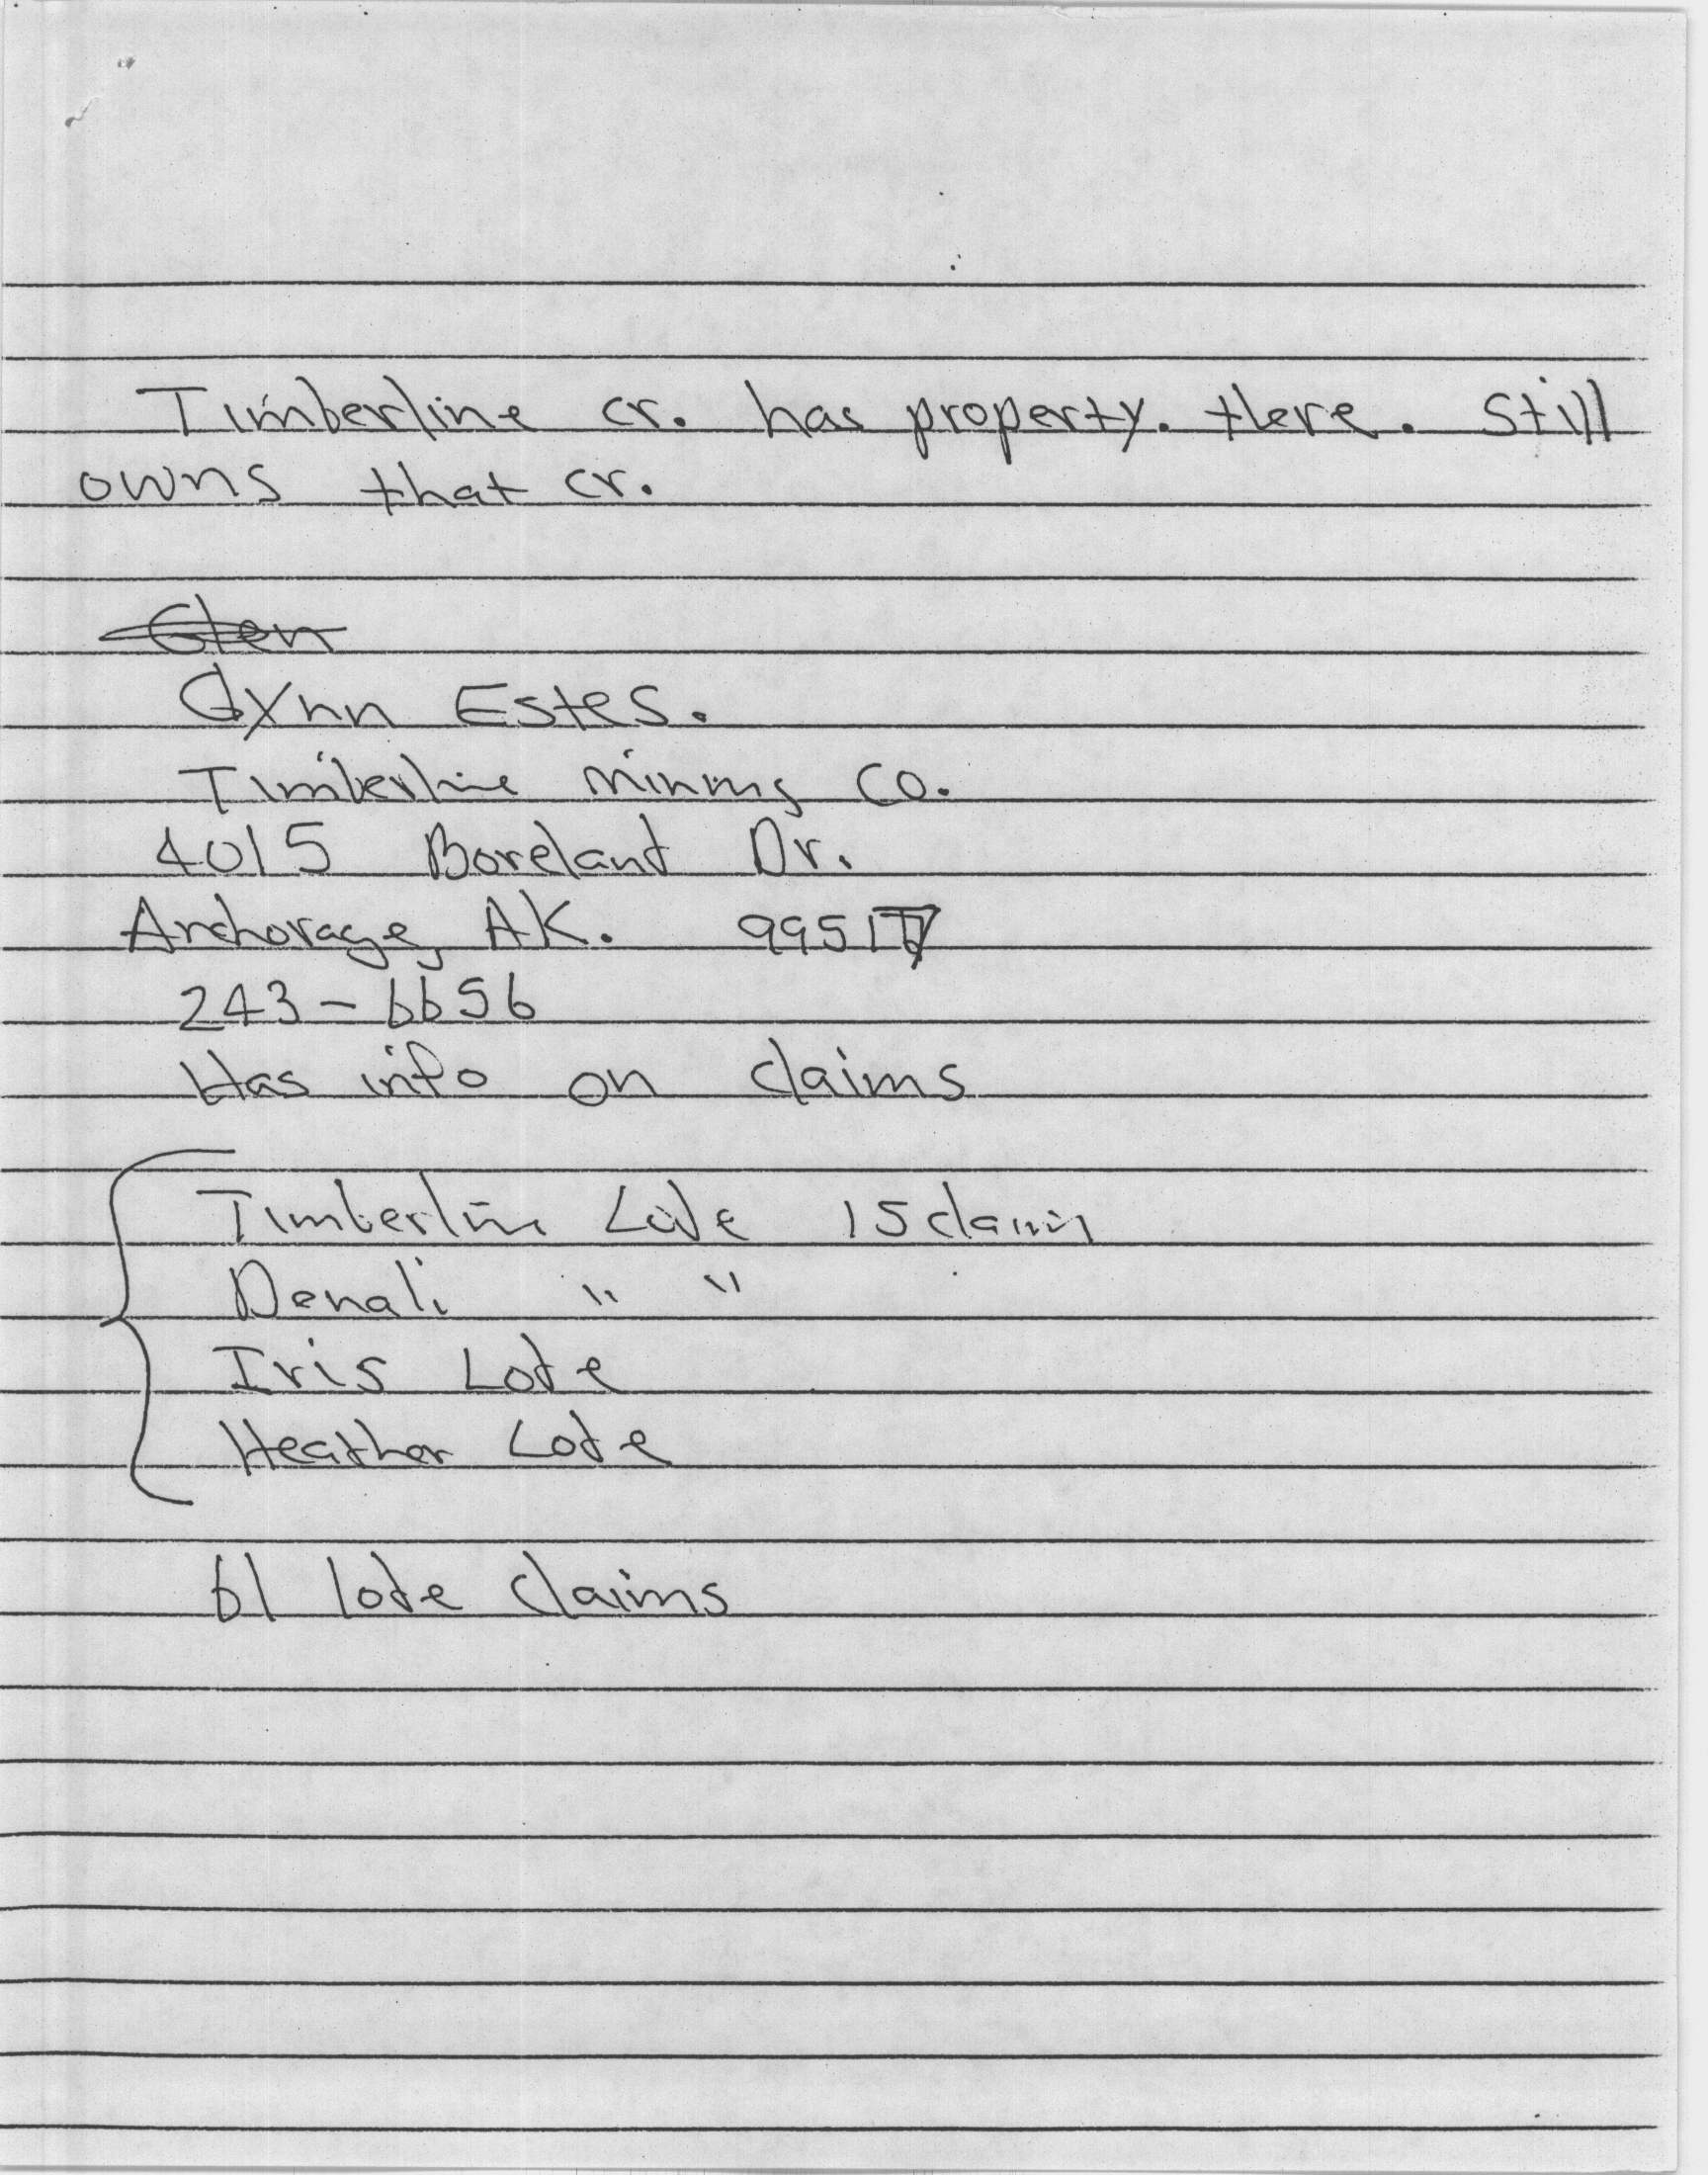 Timberline cr. has property. there. Still
owns that cr.
Glen
Glynn Estes.
Timberline Mining Co.
4015 Boreland Dr.
Anchorage, AK. 99517
243-6656
Has info on claims
Timberline Lode 15 claims
Denali " "
Iris Lode
Heather Lode
61 lode claims